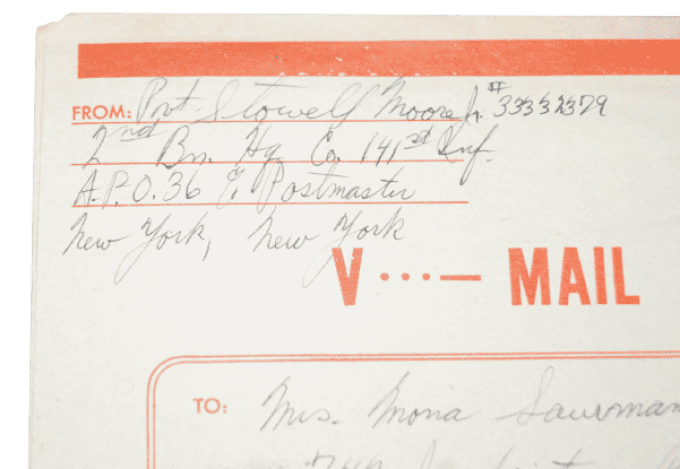 FROM: Pvt. Stowell Moore Jr. # 33332379
2nd Bn. Hq. Co. 141st Inf.
A.P.O. 36 % Postmaster
New York, New York
V ...— MAIL
TO: Mrs. Mona Saurman